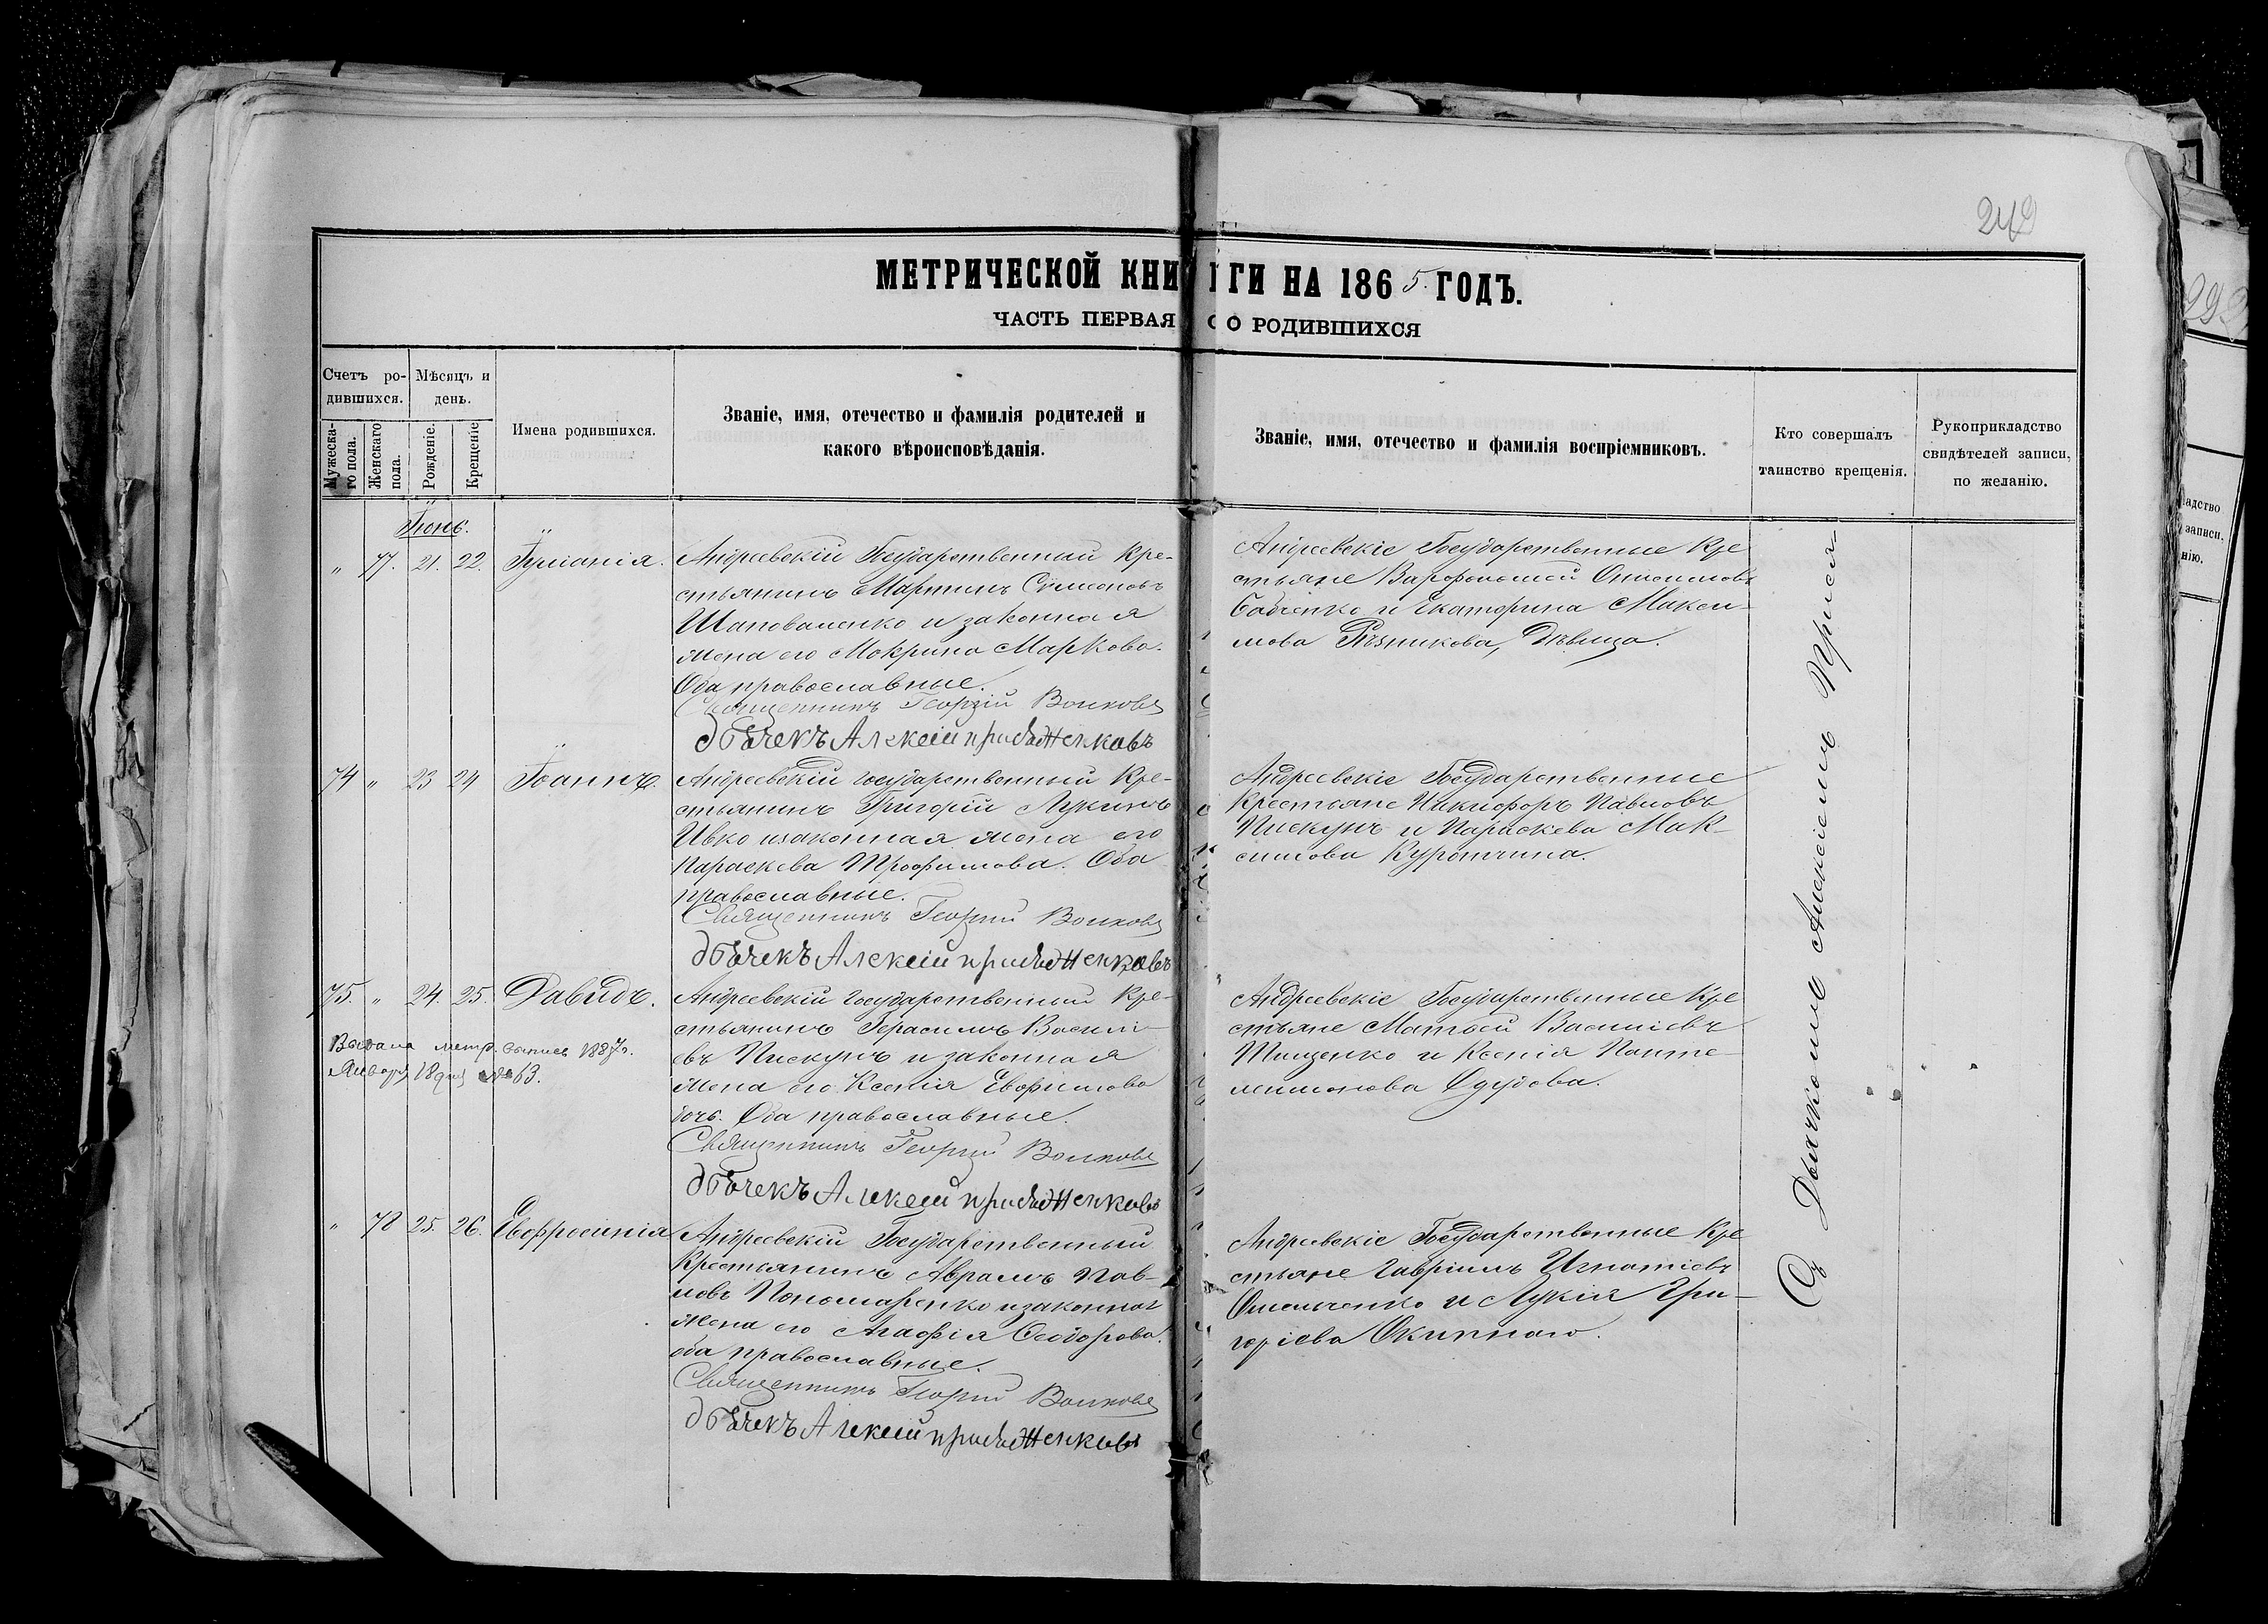 249
МЕТРИЧЕСКОЙ КНИГИ НА 1865. ГОДЪ.
ЧАСТЬ ПЕРВАЯ О РОДИВШИХСЯ
Счетъ ро-
дившихся.
Мѣсяцъ и
день.
Мужеска-
го пола.
Женскаго
пола.
Рожденіе.
Крещеніе
Имена родившихся.
Званіе, имя, отечество и фамилія родителей и
какого вѣроисповѣданія.
Званіе, имя, отечество и фамилія воспріемниковъ.
Кто совершалъ
таинство крещенія.
Рукоприкладство
свидѣтелей записи,
по желанію.
Іюнь.
" 77. 21. 22. Іуліанія.
Андреевскій Государственный Кре-
стьянинъ Мартинъ Симеоновъ
Шаповаленко и законная
жена его Мокрина Маркова.
Оба православные.
Священникъ Георгій Волковъ
дьячекъ Алексій
Андреевскіе Государственные Кре
стьяне Варфоломей
Бабченко и Екатерина Макси-
мова Рѣзникова, Дѣвица.
74 " 23 24 Іоаннъ.
Андреевскій Государственный Кре-
стьянинъ Григорій Лукинъ
Ивко изаконная жена его
Параскева Трофимова. Оба
православные.
Священникъ Георгій Волковъ
дьячекъ Алексій
Андреевскіе Государственные
Крестьяне Никифоръ Павловъ
Пискунъ и Параскева Мак-
симова
75. " 24. 25. Давидъ.
Выдана метр. выпись 1887г.
Января 18 дня №63.
Андреевскій Государственный Кре-
стьянинъ Герасимъ Василі-
евъ Пискунъ и законная
жена его Ксенія Евфимова
дочь. Оба православные.
Священникъ Георгій Волковъ
дьячекъ Алексій
Андреевскіе Государственные Кре
стьяне Матѳей Василіевъ
Тищенко и Ксенія Панте-
леимонова
" 78 25. 26. Евфросинія
Андреевскій Государственный
Крестьянинъ Аврамъ Пав-
ловъ Пономаренко изаконная
жена его Агафія Ѳеодорова.
оба православные.
Священникъ Георгій Волковъ
дьячекъ Алексій
Андреевскіе Государственные Кре
стьяне Гавріилъ Игнатіевъ
Омельченко и Лукія Гри-
горіева
Съ Дьячкомъ Алексіемъ